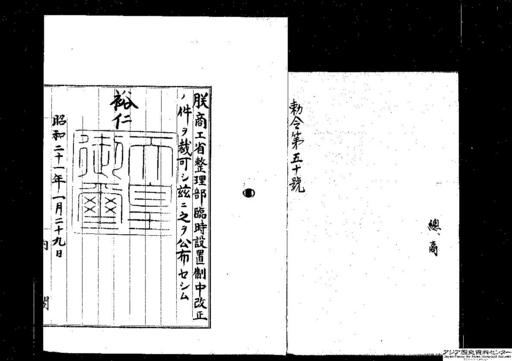 勅令第五十號
總、商
朕商工省整理部臨時設置制中改正
ノ件ヲ裁可シ茲ニ之ヲ公布セシム
裕仁
天皇
御璽
昭和二十一年一月二十九日
内閣
アジア歴史資料センター